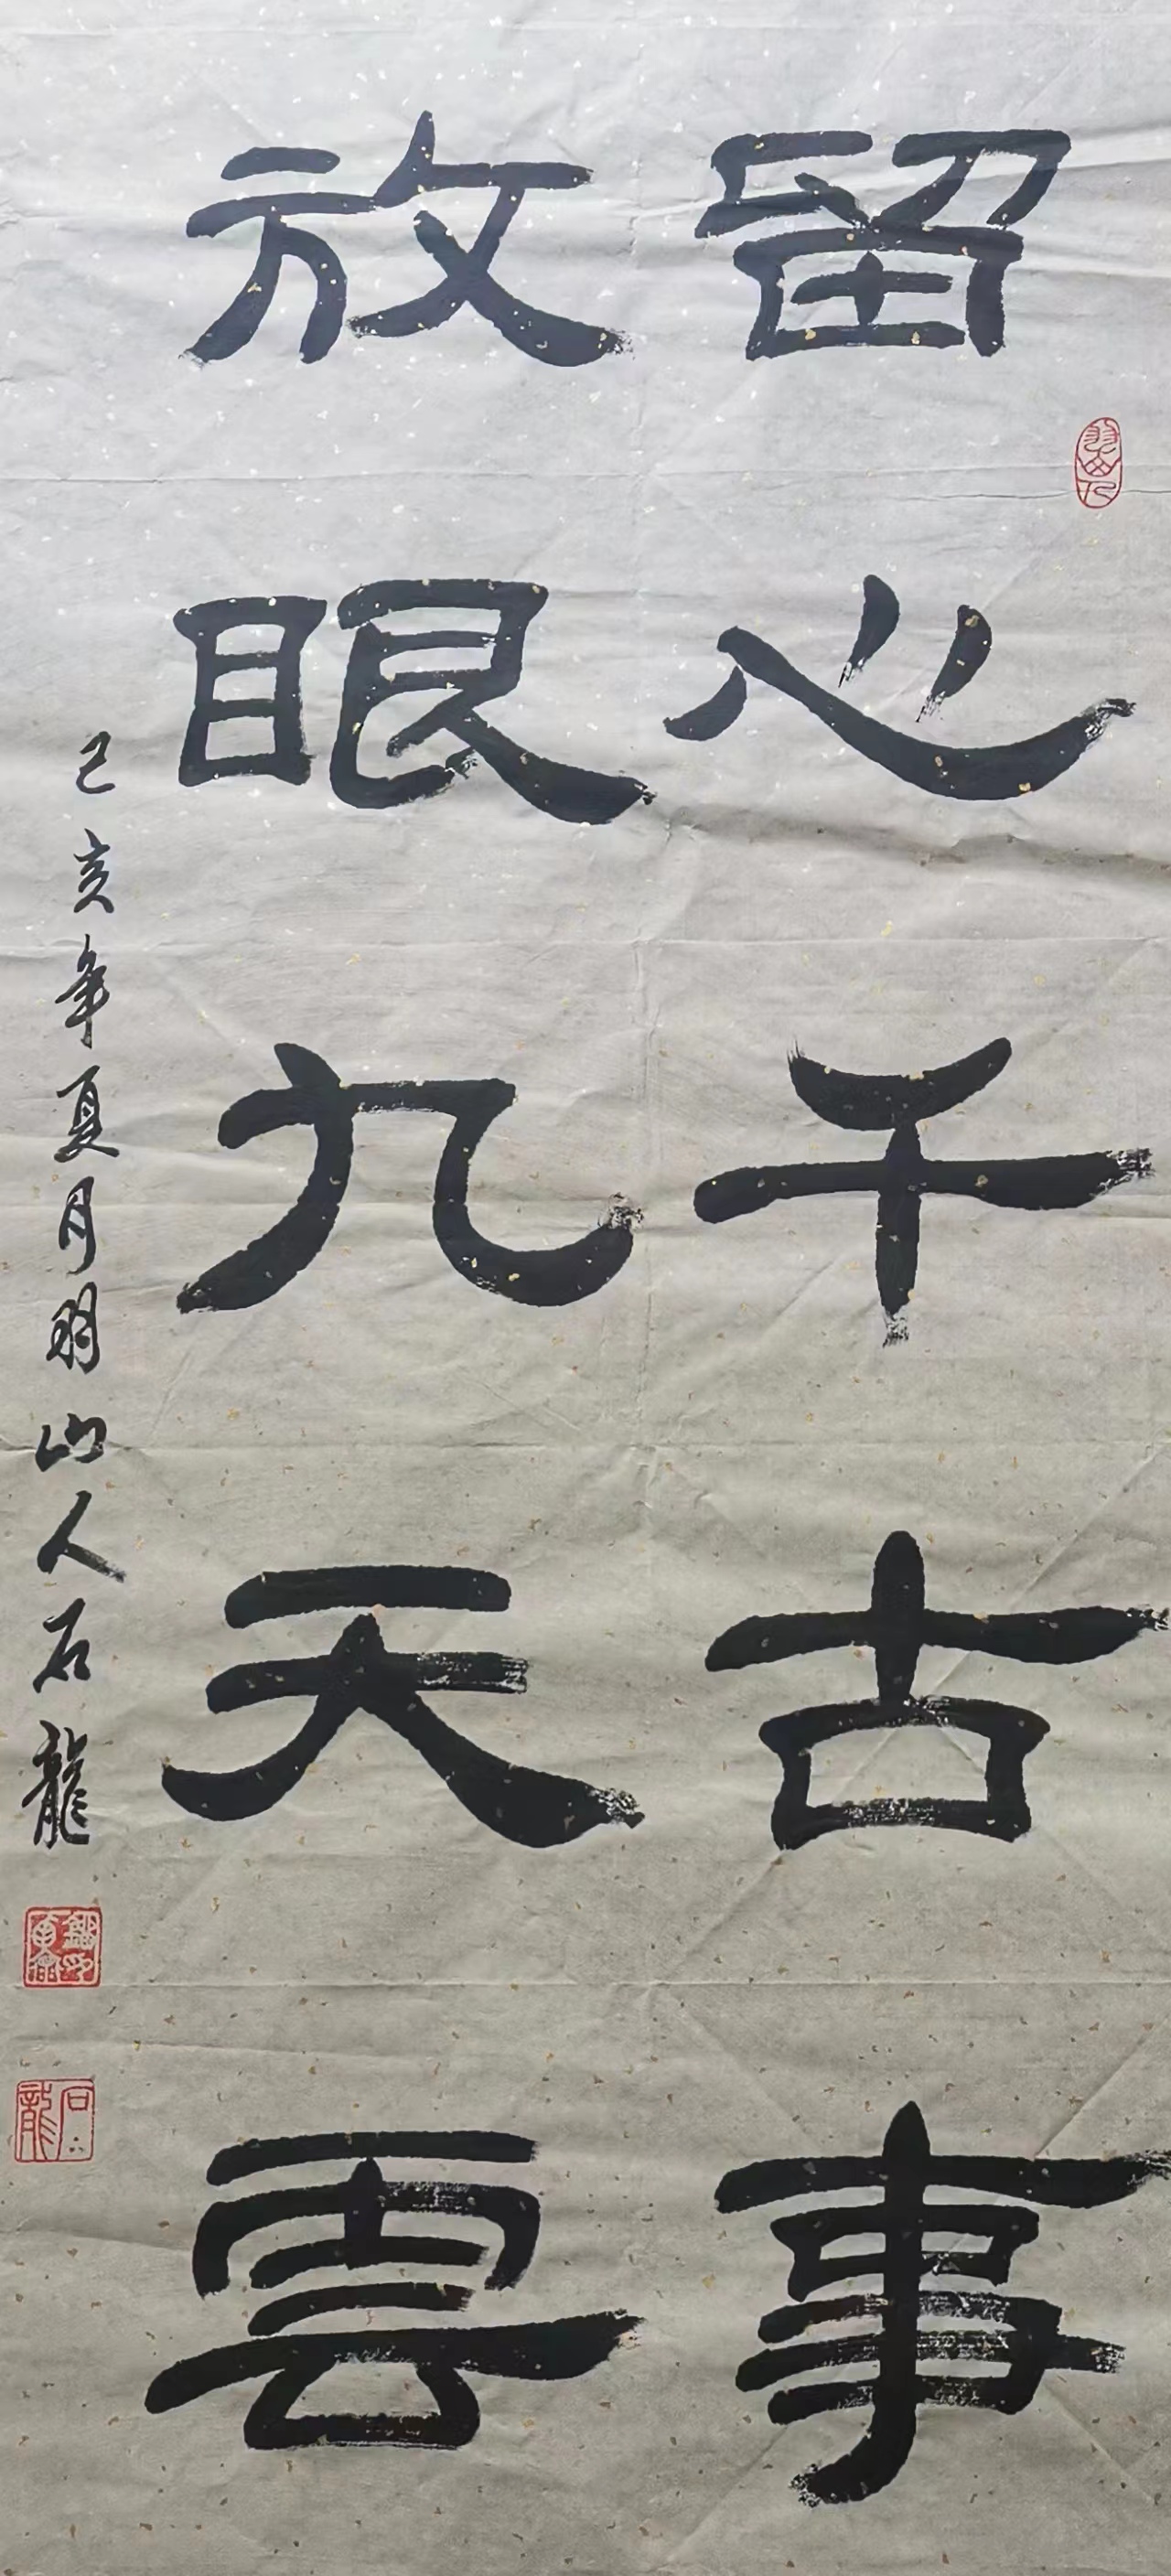 留心千古事
放眼九天雲
己亥年夏月羽山人石龍
石龍